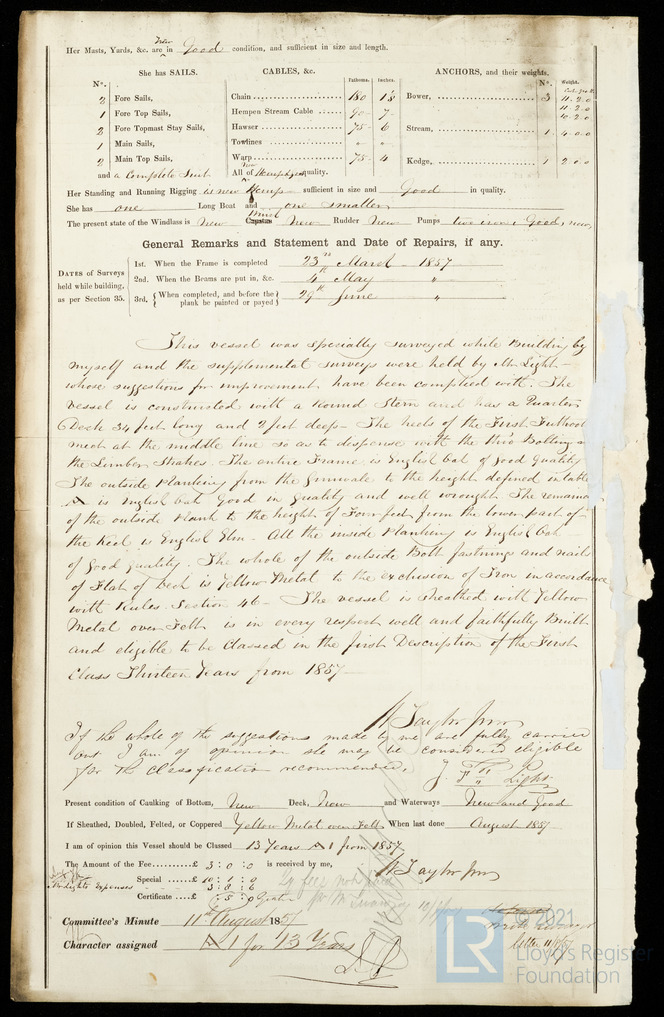 Her Masts, Yards, &c. are in Good condition, and sufficient in size and length.
She has SAILS.
N°.
2 Fore Sails,
1 Fore Top Sails,
2 Fore Topmast Stay Sails,
1 Main Sails,
2 Main Top Sails,
and a Complete Suit
CABLES, &c.
Fathoms. Inches.
Chain 180
Hempen Stream Cable 90 7
Hawser 75 6
Towlines " "
Warp 75 4
All of quality.
ANCHORS, and their weights.
N°. Weight.
Bower, 3 11.2.0
11.2.0
10.2.0
Stream, 1 4.0.0
Kedge, 1 2.0.0
Her Standing and Running Rigging is new Hemp sufficient in size and Good in quality.
She has one Long Boat and one smaller
The present state of the Windlass is New Capstan New Rudder New Pumps two iron, Good, new
General Remarks and Statement and Date of Repairs, if any.
DATES of Surveys held while building, as per Section 35.
1st. When the Frame is completed 23rd March 1857
2nd. When the Beams are put in, &c. 4th May "
3rd. When completed, and before the plank be painted or payed 29th June "
This vessel was specially surveyed while Building by
myself and the supplemental surveys were held by Mr Light
whose suggestions for improvement have been complied with. The
vessel is constructed with a Round Stern and has a Quarter
Deck 34 feet long and 2 feet deep. The heels of the First Futtock
meet at the middle line so as to dispense with the thro Bolting
the Limber Strakes. The entire Frame is English Oak of good quality
The outside Planking from the Gunwale to the height defined in table
A is English Oak Good in quality and well wrought. The remainder
of the outside Plank to the height of Four feet from the lower part of
the Keel is English Elm. All the inside Planking is English Oak
of good quality. The whole of the outside Bolt fastnings and nails
of Flat of Deck is Yellow Metal to the exclusion of Iron in accordance
with Rules. Section 46. The vessel is Sheathed with Yellow
Metal over Felt is in every respect well and faithfully Built
and eligible to be Classed in the first Description of the First
Class Thirteen Years from 1857
W Taylor Junr
If the whole of the suggestions made by me are fully carried
out I am of opinion she may be considered eligible
for the classification recommended.
Light
Present condition of Caulking of Bottom, New Deck, New and Waterways New and Good
If Sheathed, Doubled, Felted, or Coppered Yellow Metal over Felt When last done August 1857
I am of opinion this Vessel should be Classed 13 Years A 1 from 1857
The Amount of the Fee £ 3 : 0 : 0 is received by me,
Special £ 10 : 1 : 0
Mr Lights expenses 3 : 8 : 6
Certificate £ : 5 : 0
W Taylor Junr
Committee's Minute 11th August 1857
Character assigned A 1 for 13 Years
© 2021
LR
Lloyd's Register
Foundation